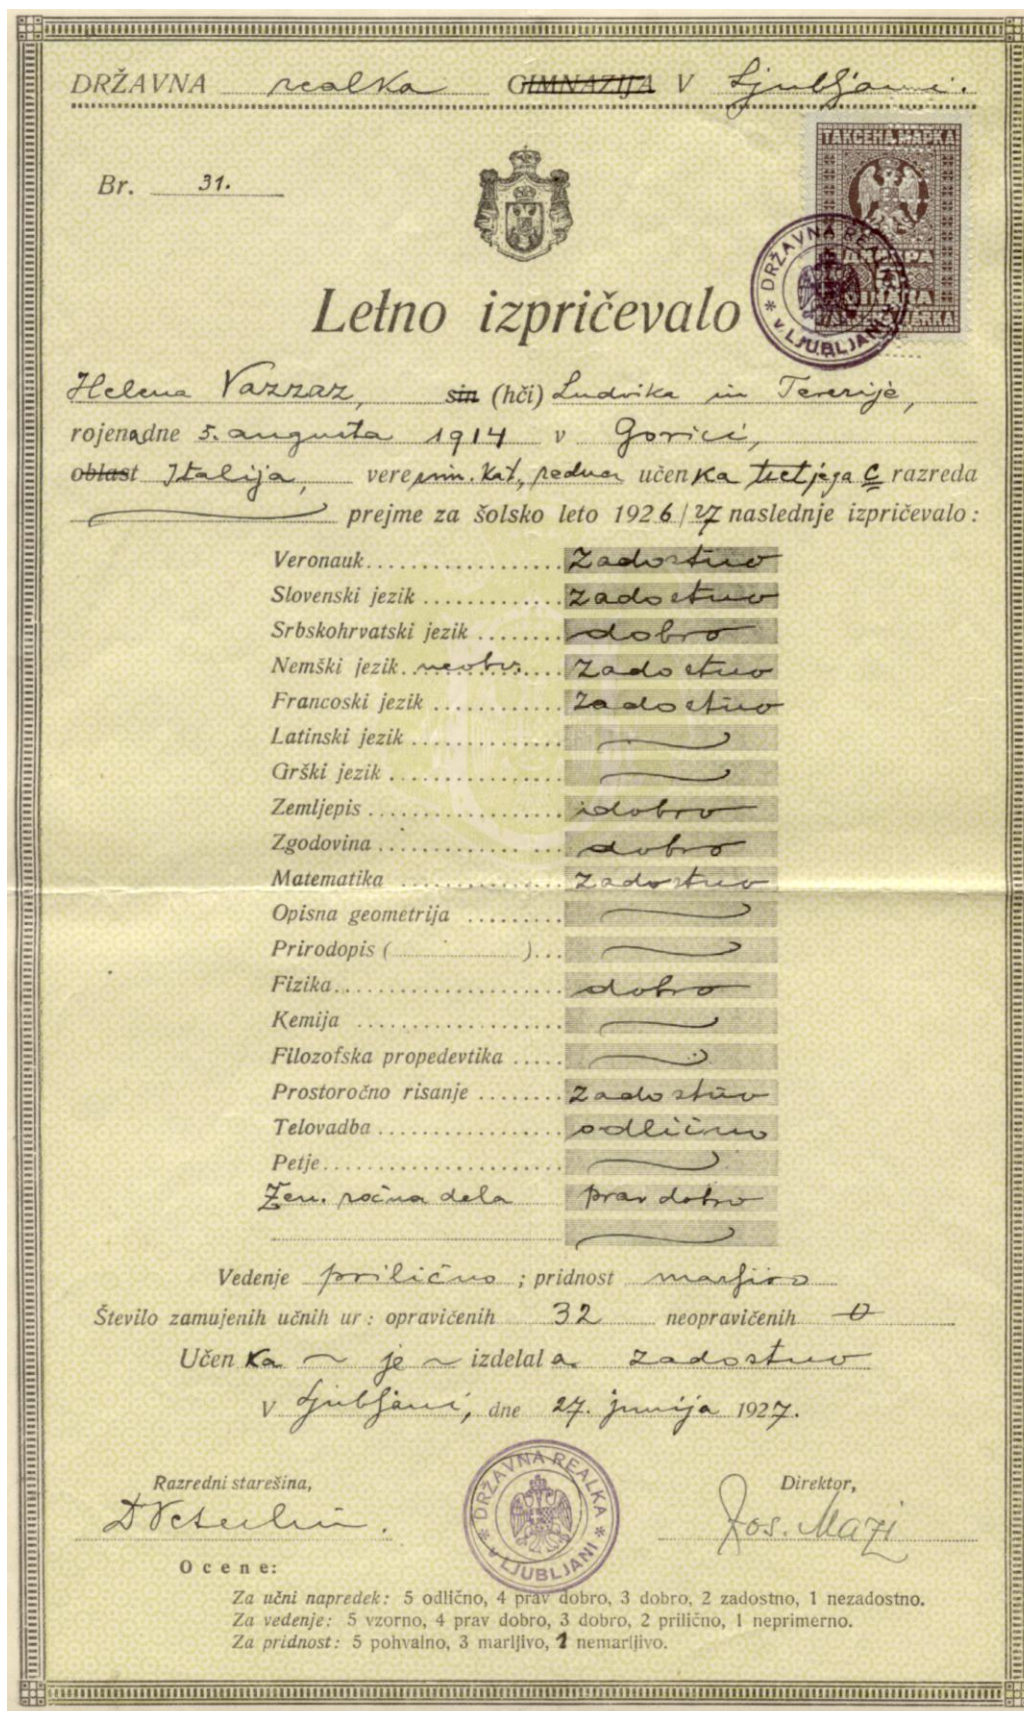 DRŽAVNA realka GIMNAZIJA V Ljubljani.
Br. 31.
ТАКСЕНА МАРКА
DRŽAVNA REALKA * V LJUBLJANI *
Letno izpričevalo
Helena Vazzaz, sin (hči) Ludvika in Terezije,
rojena dne 5. augusta 1914 v Gorici,
oblast Italija, vere rim. kat., redna učenka tretjega C razreda
prejme za šolsko leto 1926/27 naslednje izpričevalo:
Veronauk.................. zadostno
Slovenski jezik............. zadostno
Srbskohrvatski jezik........ dobro
Nemški jezik. neobv. .... zadostno
Francoski jezik............ zadostno
Latinski jezik..............
Grški jezik................
Zemljepis.................. dobro
Zgodovina................. dobro
Matematika............... zadostno
Opisna geometrija.........
Prirodopis (..............)...
Fizika..................... dobro
Kemija...................
Filozofska propedevtika.....
Prostoročno risanje........ zadostno
Telovadba................. odlično
Petje......................
Žen. ročna dela prav dobro
Vedenje prilično; pridnost marljivo
Število zamujenih učnih ur: opravičenih 32 neopravičenih 0
Učenka ~ je ~ izdelala zadostno
V Ljubljani, dne 27. junija 1927.
Razredni starešina, Direktor,
Jos. Mazi
DRŽAVNA REALKA * V LJUBLJANI *
Ocene:
Za učni napredek: 5 odlično, 4 prav dobro, 3 dobro, 2 zadostno, 1 nezadostno.
Za vedenje: 5 vzorno, 4 prav dobro, 3 dobro, 2 prilično, 1 neprimerno.
Za pridnost: 5 pohvalno, 3 marljivo, 1 nemarljivo.